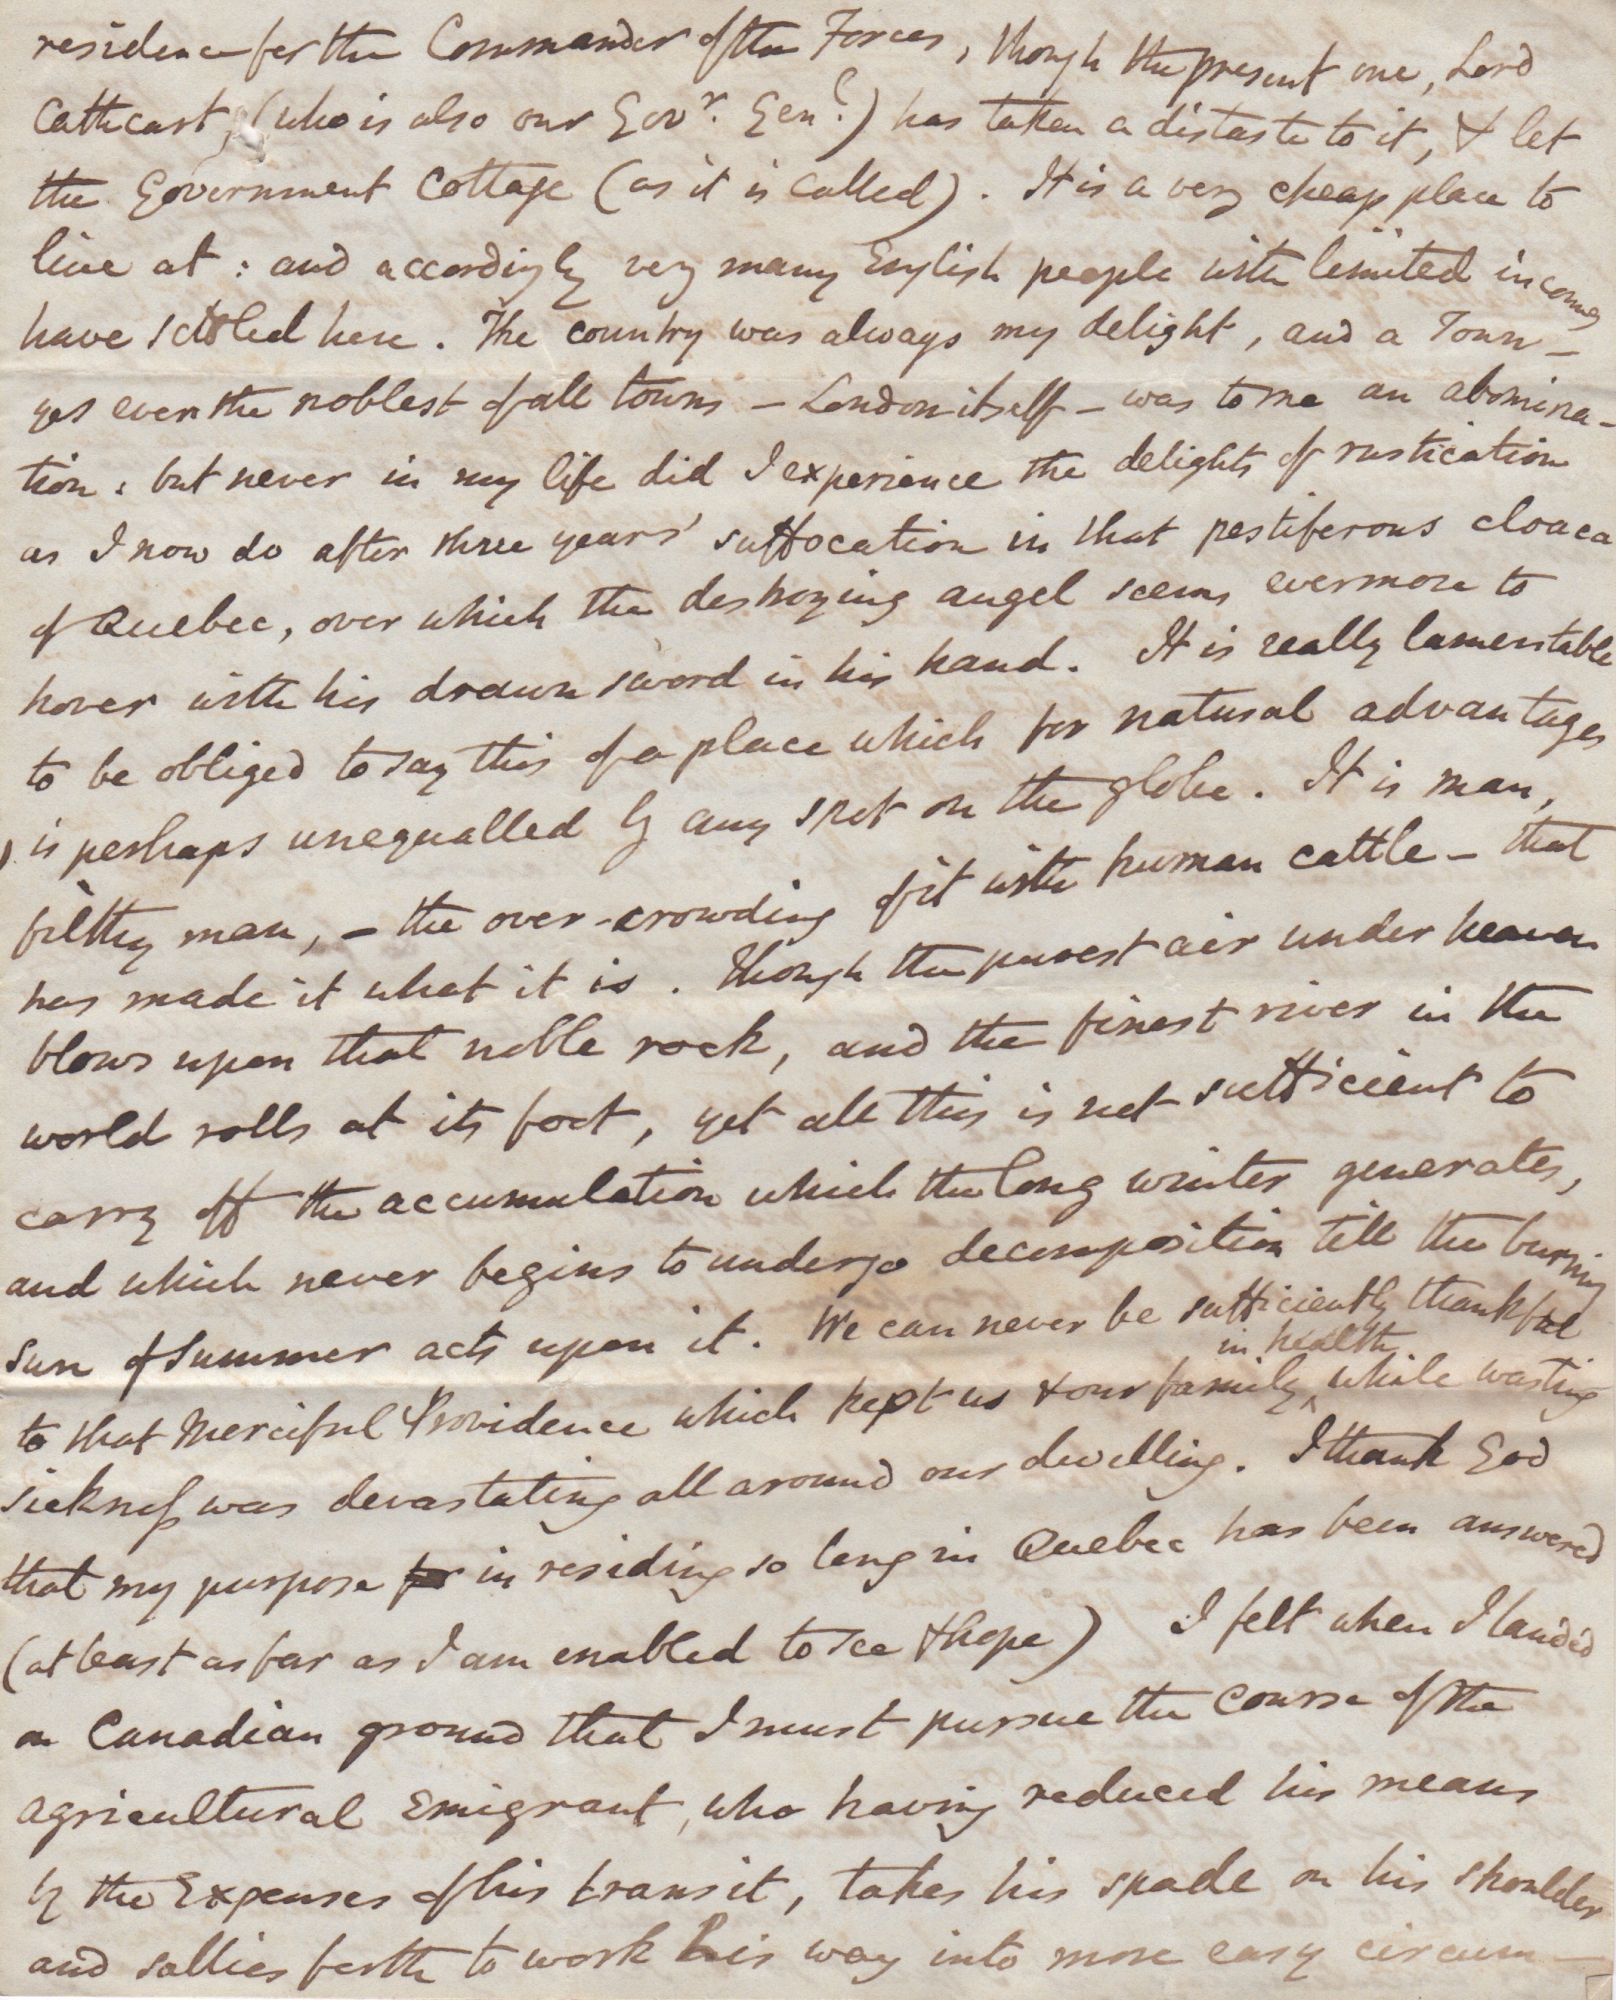 residence for the Commander of the Forces, though the present one, Lord
Cathcart, (who is also our Govr. Genl.) has taken a distaste to it, & let
the Government Cottage (as it is called). It is a very cheap place to
live at: and accordingly very many English people with limited incomes
have settled here. The country was always my delight, and a Town –
yes even the noblest of all towns – London itself – was to me an abomina-
tion: but never in my life did I experience the delights of rustication
as I now do after three years' suffocation in that pestiferous cloaca
of Quebec, over which the destroying angel seems evermore to
hover with his drawn sword in his hand. It is really lamentable
to be obliged to say this of a place which for natural advantages
is perhaps unequalled by any spot on the globe. It is man,
filthy man, – the over-crowding of it with human cattle – that
has made it what it is. Though the purest air under heaven
blows upon that noble rock, and the finest river in the
world rolls at its foot, yet all this is not sufficient to
carry off the accumulation which the long winter generates,
and which never begins to undergo decomposition till the burning
sun of summer acts upon it. We can never be sufficiently thankful
in health
to that Merciful Providence which kept us & our family, while wasting
sickness was devastating all around our dwelling. I thank God
that my purpose for in residing so long in Quebec has been answered
(at least as far as I am enabled to see & hope) I felt when I landed
on Canadian ground that I must pursue the course of the
agricultural Emigrant, who having reduced his means
by the Expenses of his transit, takes his spade on his shoulder
and sallies forth to work his way into more easy circum–